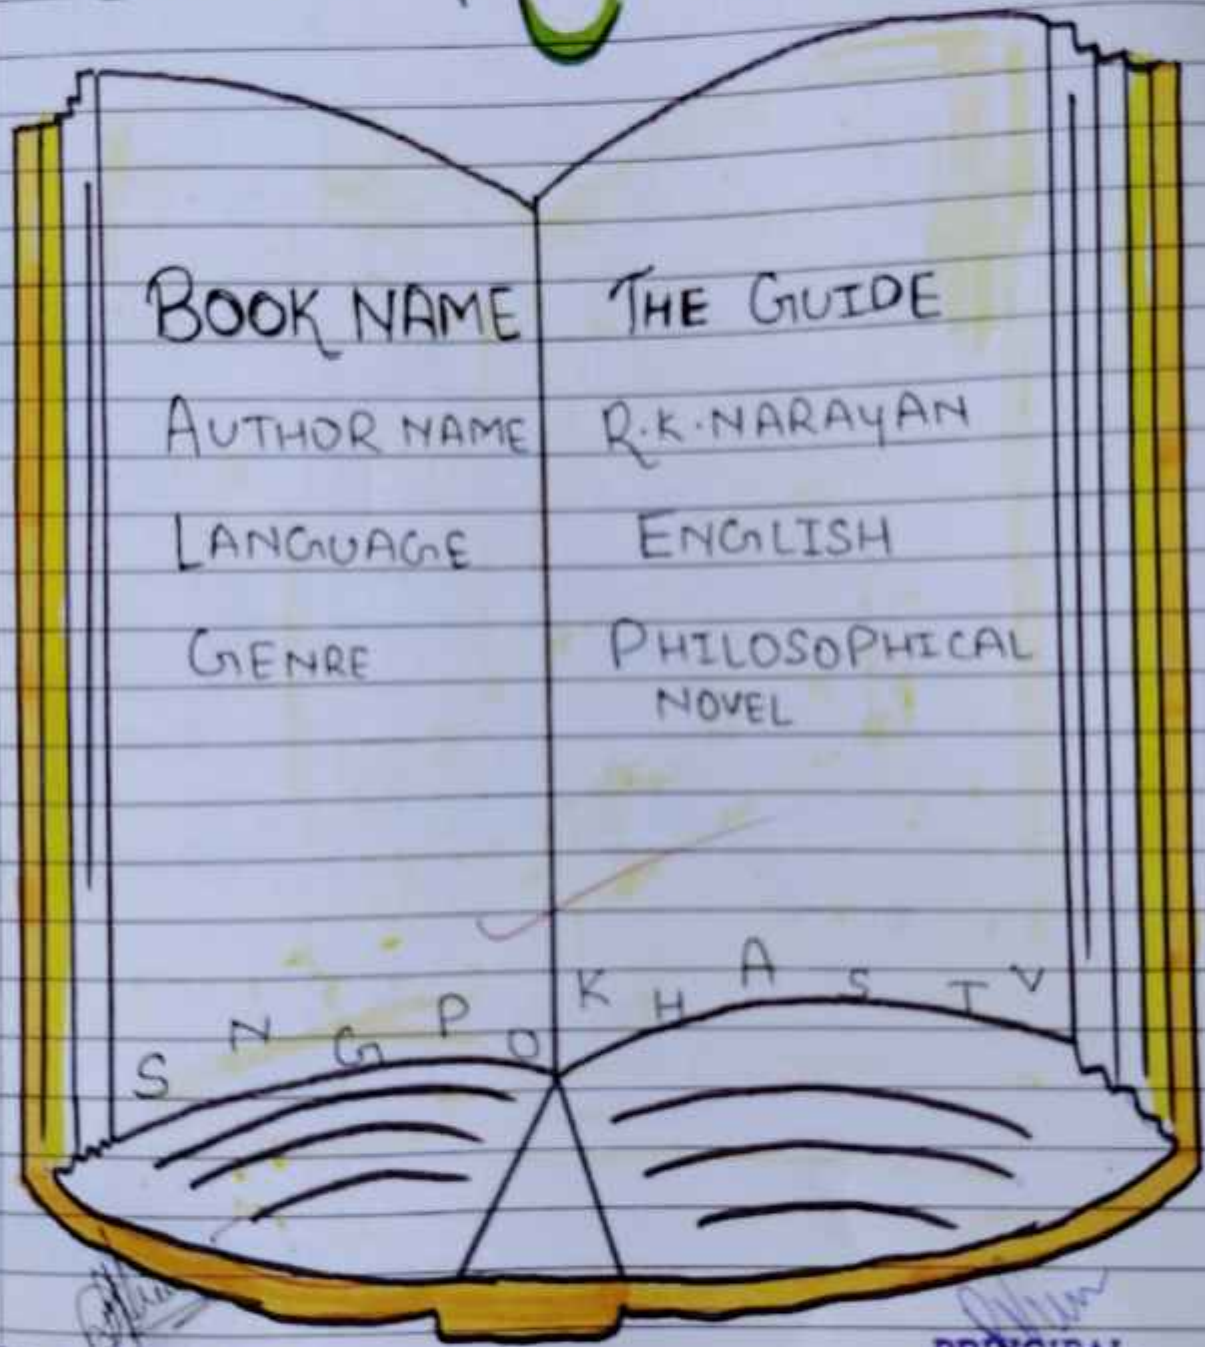 BOOK NAME THE GUIDE
AUTHOR NAME R.K.NARAYAN
LANGUAGE ENGLISH
GENRE PHILOSOPHICAL
NOVEL
S N G P O K H A S T V
PRINCIPAL